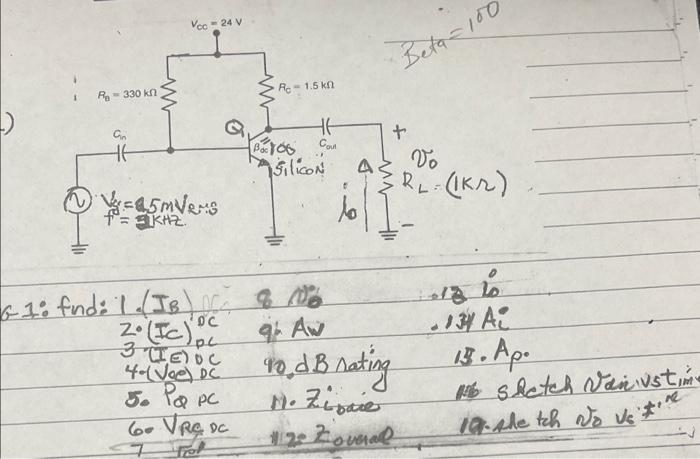 V_CC = 24 V
Beta=100
R_B = 330 kΩ
R_C = 1.5 kΩ
C_in
Q
C_out
+
β_dc
Silicon
Vo
R_L = (1KΩ)
io
5mVRMS
f = KHZ
-
find: 1. (IB) DC
2. (IC) DC
3 (IE) DC
4. (VCE) DC
5. PQ DC
6. VRC DC
7
8 Vo
9. Av
10. dB rating
11. Z
12. Z overall
io
Ai
15. Ap.
sketch Vin vs time
sketch Vo vs time